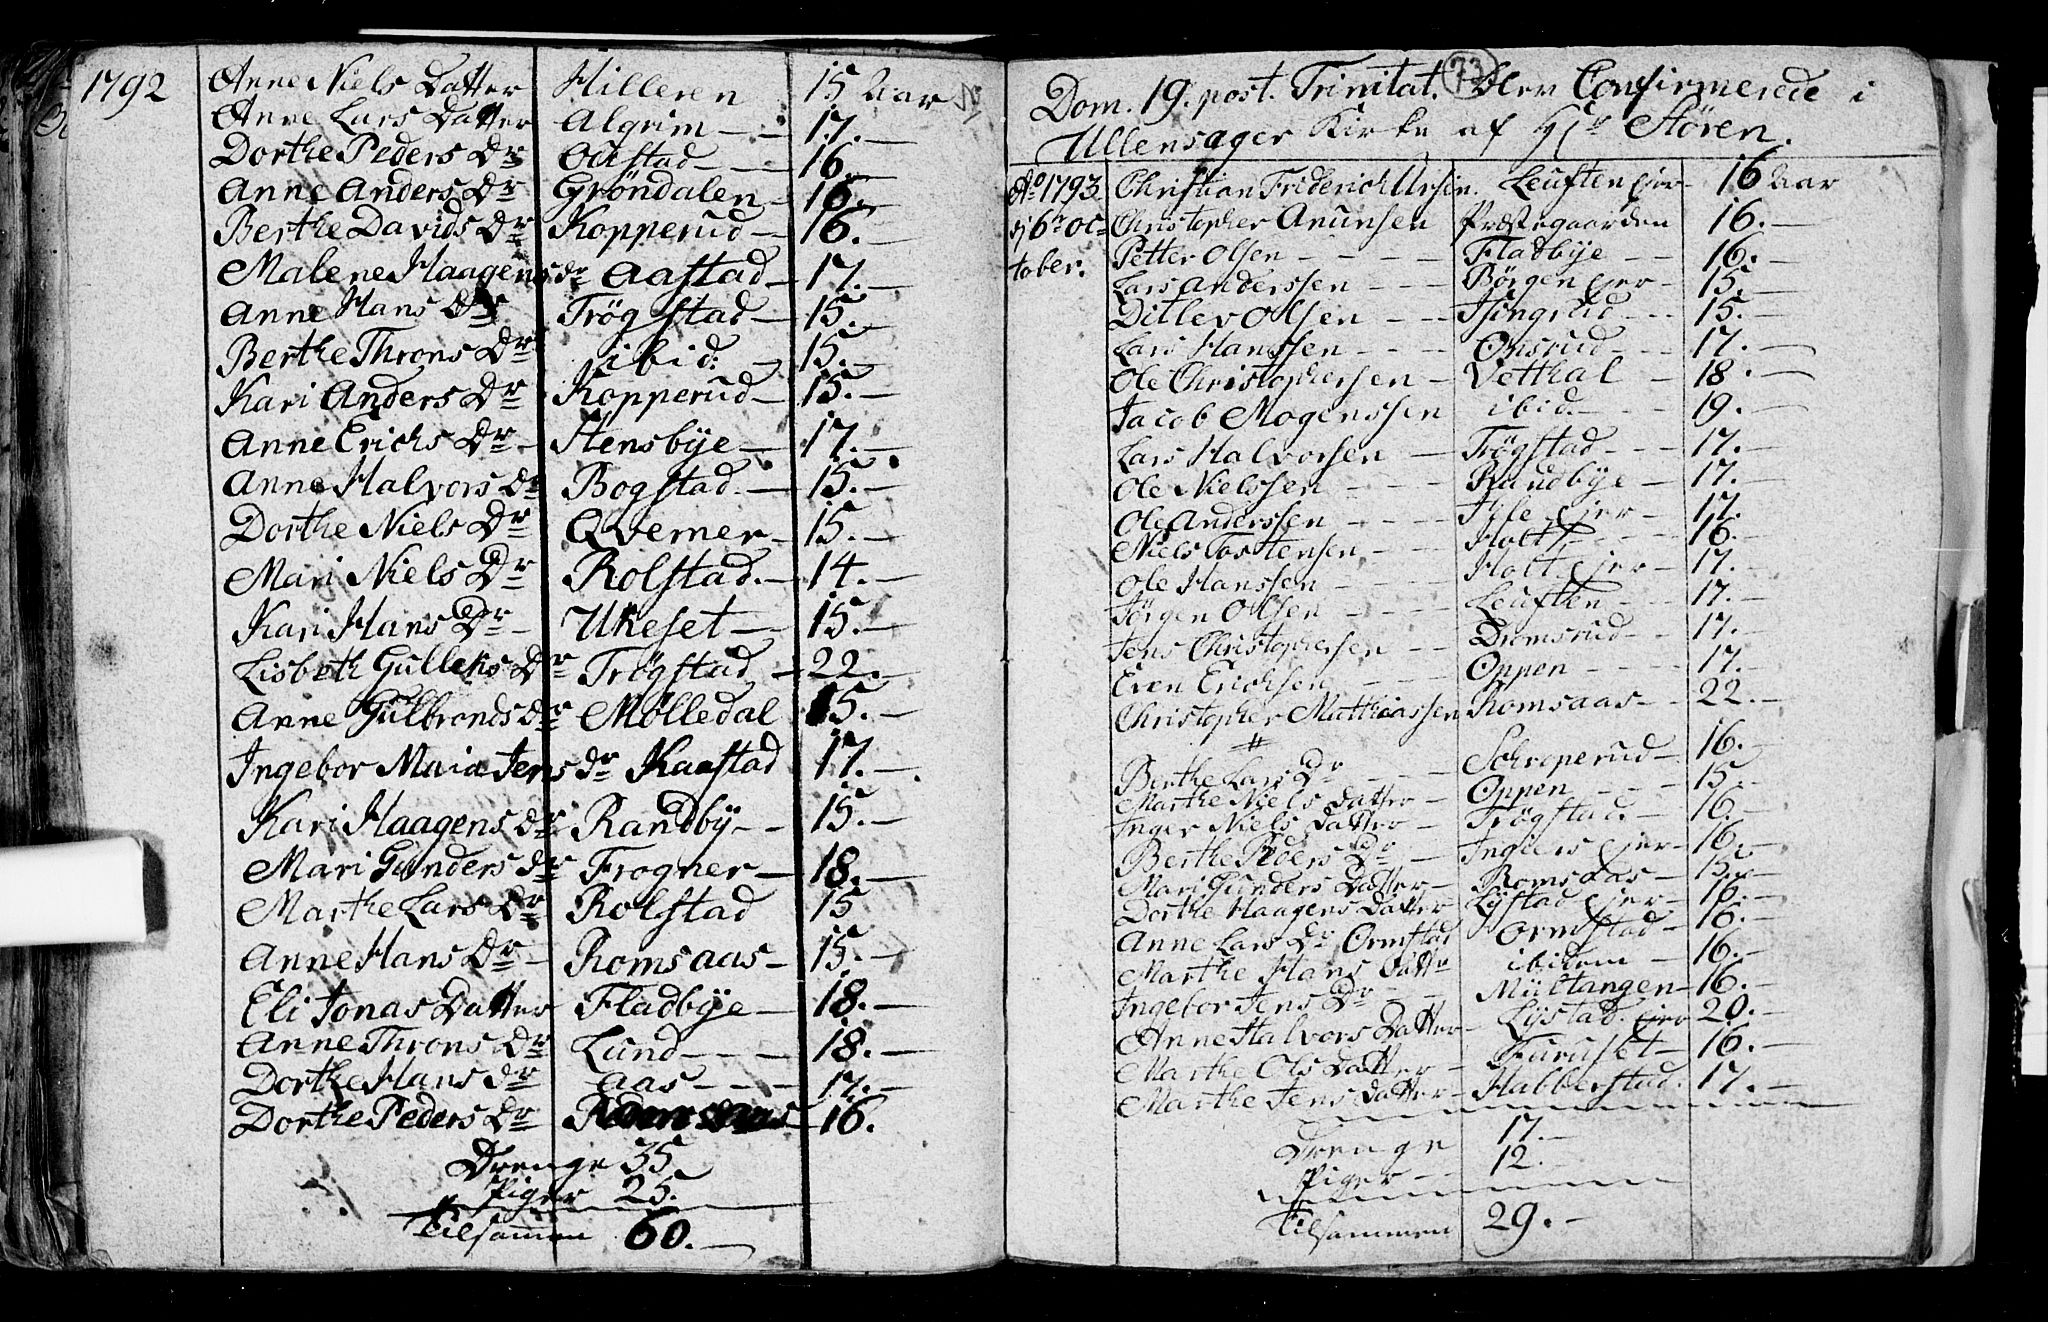 1792 Anne Niels Datter Hilleren 15 Aar
Anne Lars Datter Algrim - - 17. -
Dorthe Peders Dr Ousstad - - 16. -
Anne Anders Dr Gröndalen - 16. -
Berthe Davids Dr Kopperud - 16. -
Malene Haagens dr Aastad - 17. -
Anne Hans Dr Trögstad - 15. -
Berthe Throns Dr ibid: - 15. -
Kari Anders Dr Kopperud - 15. -
Anne Erichs Dr - Stensbÿe - 17. -
Anne Halvors Dr Bogstad. - 15. -
Dorthe Niels Dr Qverner - 15. -
Mari Niels Dr Rolstad. - 14. -
Kari Hans Dr - Ukeset - 15. -
Lisbeth Gulleks Dr Trögstad - 22. -
Anne Gulbronds dr Mölledal 15. -
Ingebor Maria Jens dr Kaastad 17. -
Kari Haagens dr Randbÿ - - 15. -
Mari Gunders dr Frogner - 18. -
Marthe Lars Dr Rolstad 15
Anne Hans Dr - Romsaas - 15. -
Eli Jonas Datter Fladbÿe - 18. -
Anne Throns Dr Lund - - - 18. -
Dorthe Hans dr Aas - - - 17. -
Dorthe Peders Dr Romsaas - 16.
Drenge 35.
Piger 25.
Tilsammen 60. -
73
Dom. 19. post. Trinitat. blev Confirmerede i
Ullensager Kirke af Hr Stören.
Ao 1793 Christian Friderich Leuften ejer - 16 Aar
d 6te Oc= Christopher Anunsen Præstegaarden 16. -
tober. Petter Olsen - - - - Fladbÿe - - 16. -
Lars Anderssen - - - Börgen ejer - 15. -
Ditlev Olsen - - Isingrud - - 15. -
Lars Hanssen - - - Onsrud - - 17. -
Ole Christophersen - Vethal - 18. -
Jacob Mogenssen ibid. - - - 19. -
Lars Halvorsen - Trögstad - - - 17. -
Ole Nielssen - - - - Randbÿe - - 17. -
Ole Anderssen - - - - ejer - 17.
Niels Tostensen - - - Holtt - - - 16. -
Ole Hanssen - - - - Holt. ejer - 17. -
Jörgen Olsen - - - - Leuften - - - 17. -
Jens Christophersen - - Dromsrud - - 17. -
Even Erichsen - - - Oppen - - - - 17. -
Christopher Matthiassen Romsaas - - 22. -
#
Berthe Lars Dr - - - Schroperud - 16. -
Marthe Niels Datter - Oppen - - - - 15. -
Inger Niels Datter - Trögstad. - 16. -
Berthe Peders Dr - - ejer - 16. -
Mari Gunders Datter - Romsaas - 15. -
Dorthe Haagens Datter - Lÿstad ejer - 16. -
Anne Lars Dr Ormstad Ormstad - 16. -
Marthe Hans Datter ibidem - 16. -
Ingebor Jens Dr - - - 16. -
Anne Halvors Datter - Lÿstad. ejer 20. -
Marthe Ols Datter - Furuset - 16. -
Marthe Jens Datter - Habberstad. 17. -
Drenge 17. -
Piger - - 12. -
Tilsammen 29. -